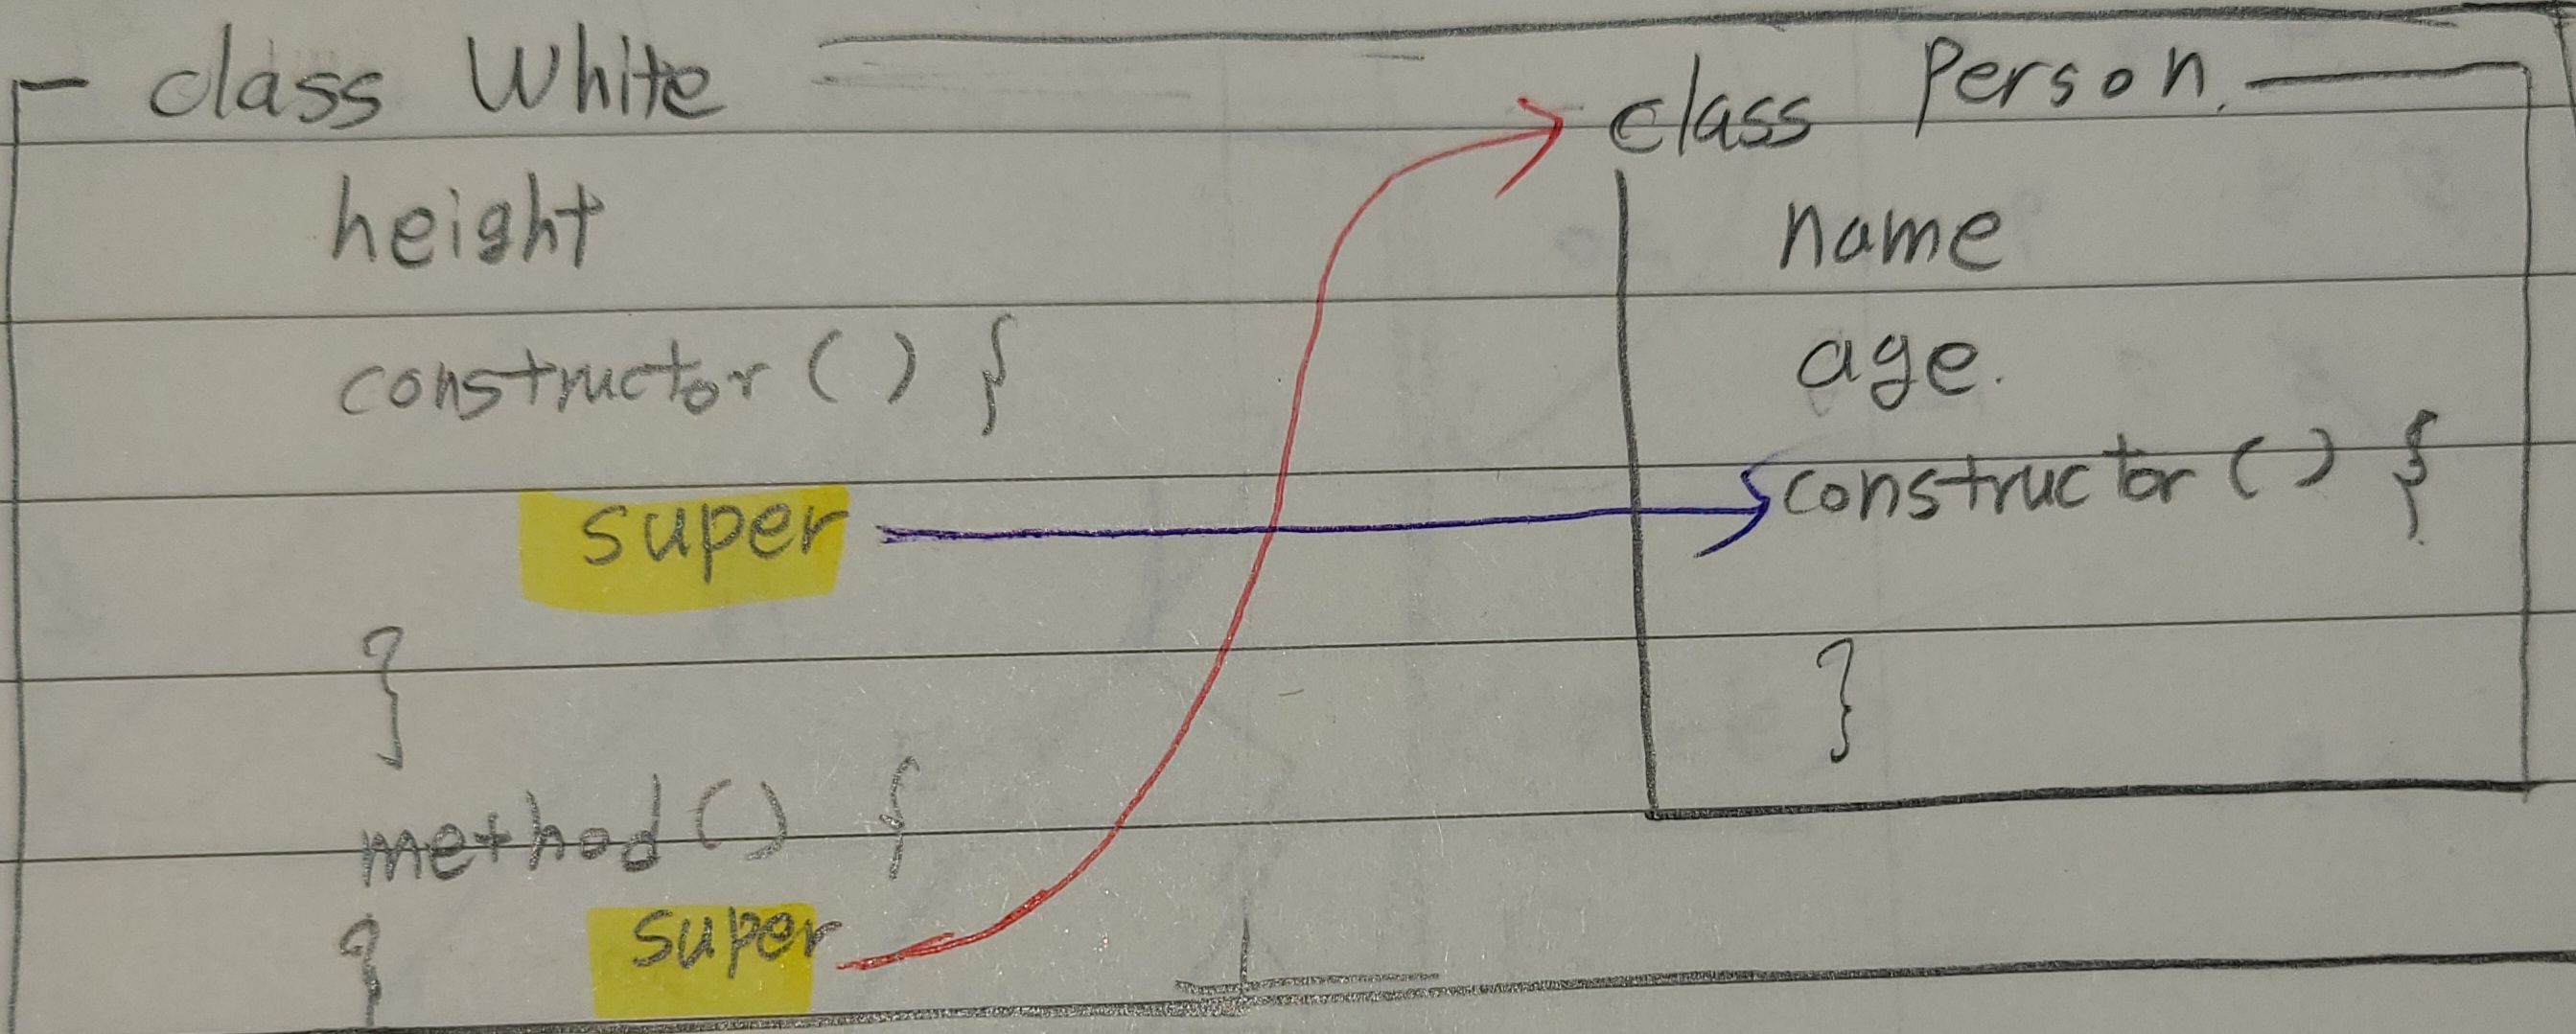 class White
height
constructor () {
super
}
method() {
super
}
class Person.
name
age.
constructor () {
}